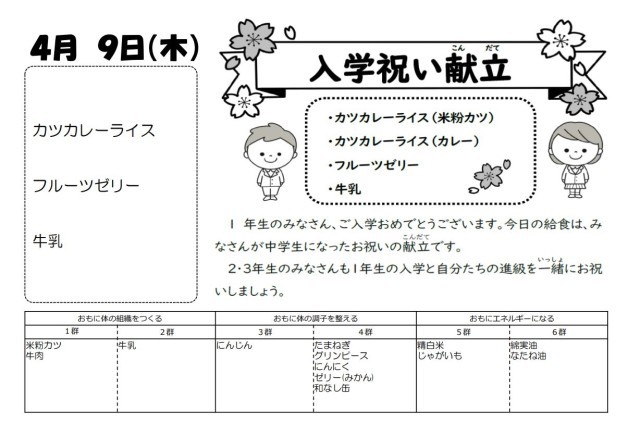 4月 9日(木)
カツカレーライス
フルーツゼリー
牛乳
入学祝い献立
こん だて
・カツカレーライス(米粉カツ)
・カツカレーライス(カレー)
・フルーツゼリー
・牛乳
1年生のみなさん、ご入学おめでとうございます。今日の給食は、み
なさんが中学生になったお祝いの献立です。
こんだて
2・3年生のみなさんも1年生の入学と自分たちの進級を一緒にお祝
いっしょ
いしましょう。
おもに体の組織をつくる おもに体の調子を整える おもにエネルギーになる
1群 2群 3群 4群 5群 6群
米粉カツ 牛乳 にんじん たまねぎ 精白米 綿実油
牛肉 グリンピース じゃがいも なたね油
にんにく
ゼリー(みかん)
和なし缶